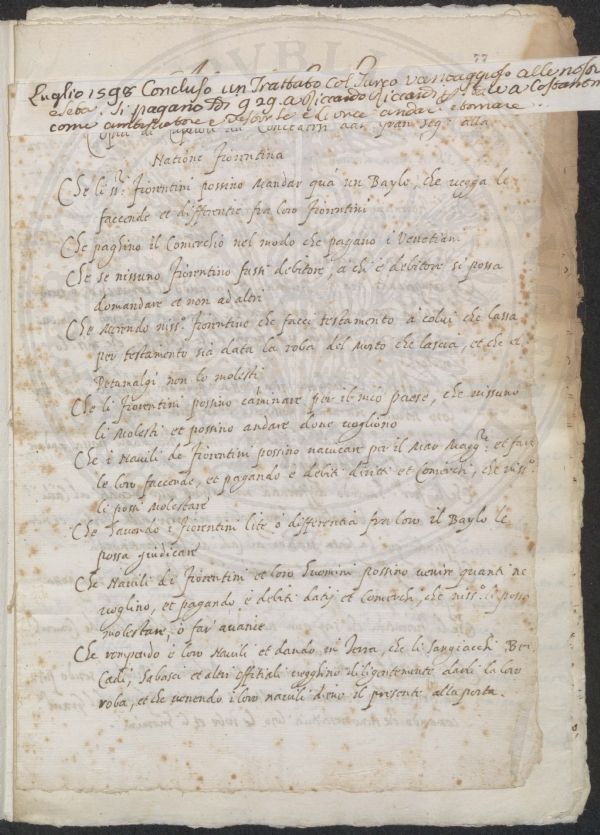 77
Luglio 1598 Concluso un Trattato col Turco vantaggioso alle nostre
e Seta. Si pagano 929 a Riccardo Riccardi a Costantin
come ambasciatore e andar e tornare
Copia di Capitoli Concessi dal Gran Sigre alla
Natione Fiorentina
Che li ss.ri Fiorentini possino Mandar quà un Baylo, che vegga le
faccende et differentie fra loro Fiorentini
Che paghino il Comerchio nel modo che pagano i Venetiani
Che se nissuno Fiorentino fussi debitore, à chi è debitore si possa
domandare et non ad altri
Che Morendo niss.o Fiorentino che facci testamento à colui che lassa
per testamento sia data la roba del Morto che lascia, et che il
Petamalgi non lo molesti
Che li Fiorentini possino caminare per il mio paese, che nissuno
li Molesti et possino andare dove vogliono
Che i Navili de Fiorentini possino navicare per il Mar Magg.re et fare
le loro faccende, et pagando e debiti diritti et Comerchi, che niss.o
li possi Molestare
Che havendo i Fiorentini lite ò differentia fra loro il Baylo le
possa giudicare
Che Navili di Fiorentini et loro huomini possino venire quanti ne
voglino, et pagando e debiti datij et Comerch, che niss.o li possi
molestare, ò far' avanie
Che rompendo e loro Navili et dando in Terra, che li Sangiacchi Bei
Cadi, Sabasci et altri Offitiali veghino diligentemente darli la loro
roba, et che venendo i loro navili dieno il presente alla porta.